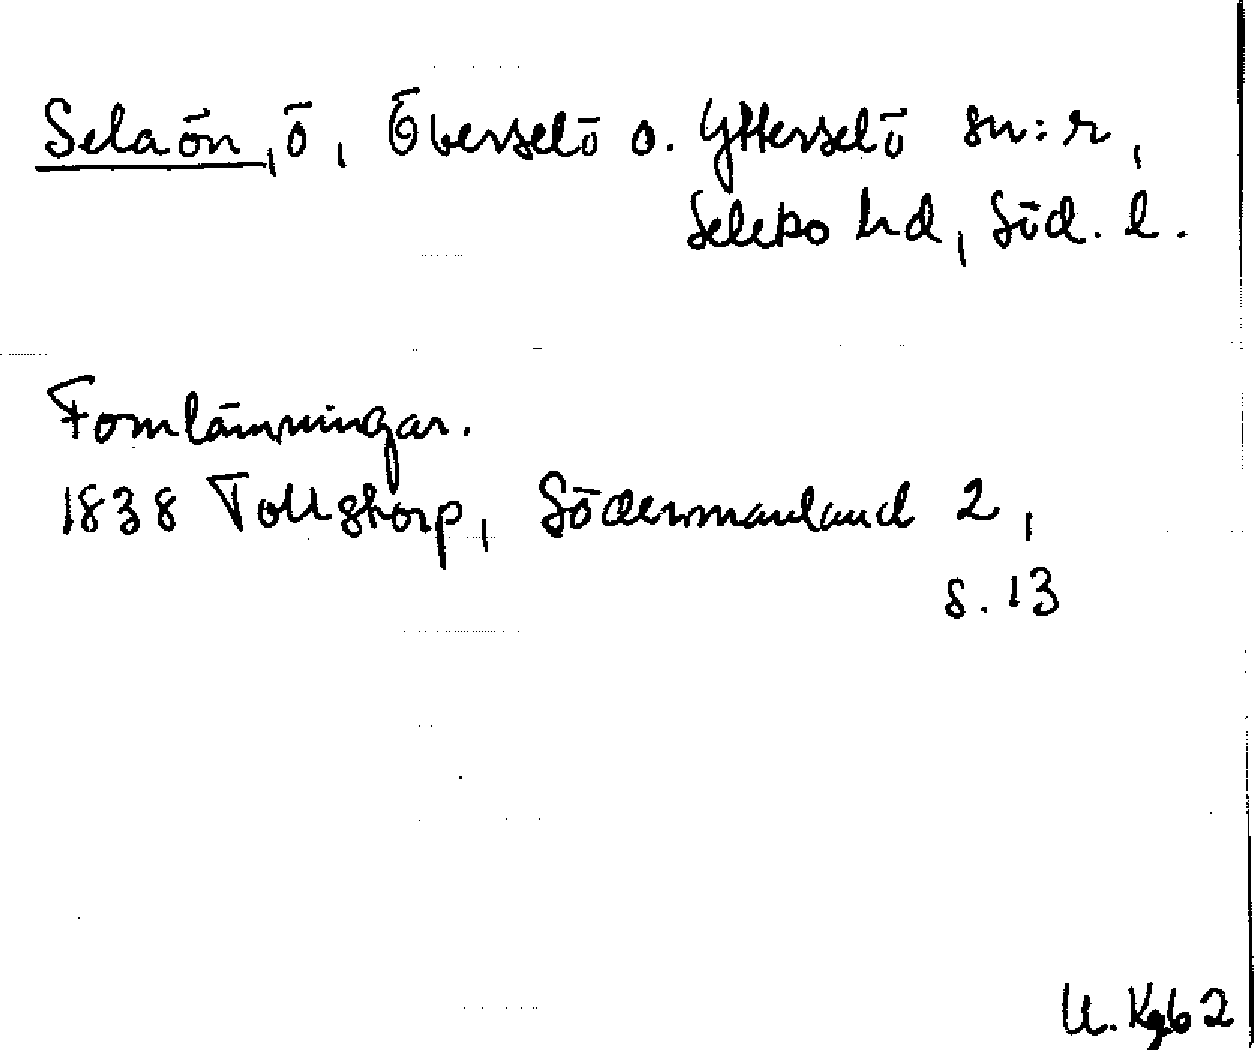 Selaön, ö, Överselö o. Ytterselö sn:r,
Selebo hd, Söd. l.
Fornlämningar.
1838 Tollstorp, Södermanland 2,
s. 13
U. Kgb 2